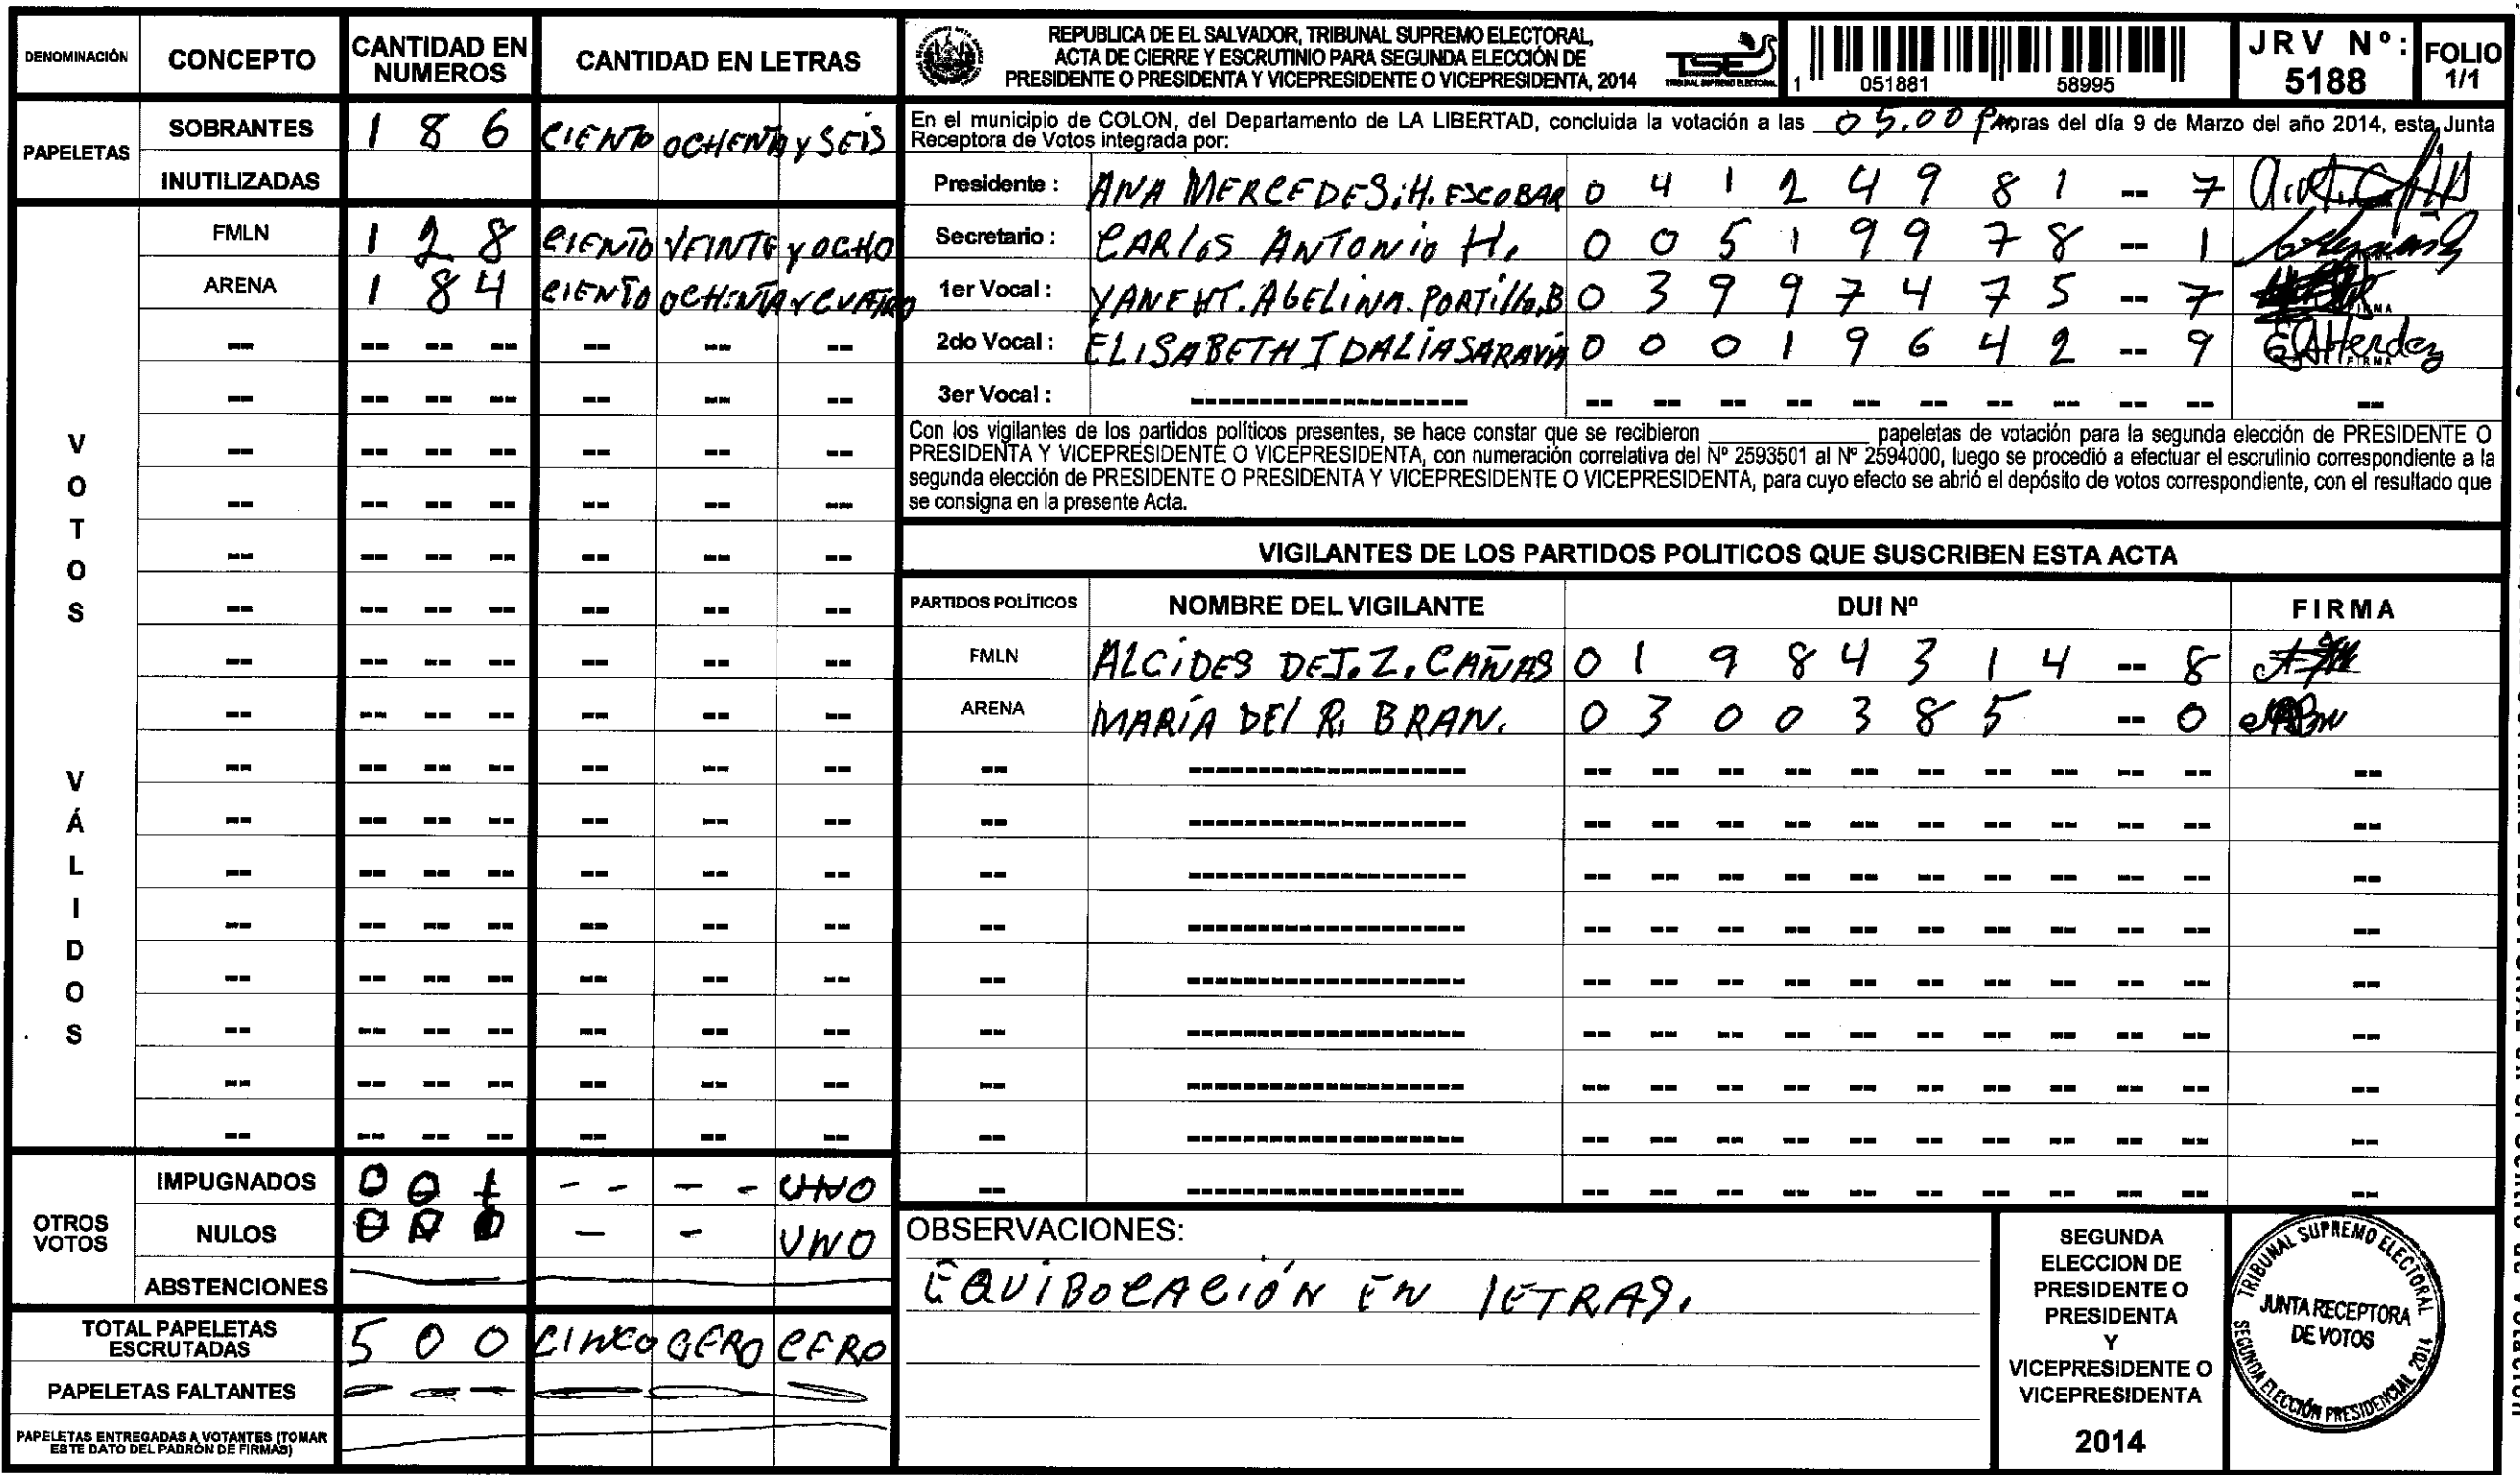 DENOMINACIÓN CONCEPTO CANTIDAD EN NUMEROS CANTIDAD EN LETRAS
PAPELETAS
SOBRANTES 1 8 6 CIENTO OCHENTA y SEIS
INUTILIZADAS
VOTOS VÁLIDOS
FMLN 1 2 8 CIENTO VEINTE y OCHO
ARENA 1 84 CIENTO OCHENTA y CUATRO
OTROS VOTOS
IMPUGNADOS 0 0 1 - - - - UNO
NULOS - - UNO
ABSTENCIONES
TOTAL PAPELETAS ESCRUTADAS 5 0 0 CINCO CERO CERO
PAPELETAS FALTANTES
PAPELETAS ENTREGADAS A VOTANTES (TOMAR ESTE DATO DEL PADRÓN DE FIRMAS)
REPUBLICA DE EL SALVADOR, TRIBUNAL SUPREMO ELECTORAL,
ACTA DE CIERRE Y ESCRUTINIO PARA SEGUNDA ELECCIÓN DE
PRESIDENTE O PRESIDENTA Y VICEPRESIDENTE O VICEPRESIDENTA, 2014
TSE
TRIBUNAL SUPREMO ELECTORAL
1 051881 58995
JRV Nº: 5188
FOLIO 1/1
En el municipio de COLON, del Departamento de LA LIBERTAD, concluida la votación a las 05.00 pm horas del día 9 de Marzo del año 2014, esta Junta
Receptora de Votos integrada por:
Presidente : ANA MERCEDES.H. ESCOBAR 0 4 1 2 4 9 8 1 -- 7
Secretario : CARLOS ANTONIO H. 0 0 5 1 9 9 7 8 -- 1
1er Vocal : YANEHT. AGELINA. PORTILLO.B 0 3 9 9 7 4 7 5 -- 7
2do Vocal : ELISABETH IDALIA SARAVIA 0 0 0 1 9 6 4 2 -- 9
3er Vocal :
Con los vigilantes de los partidos políticos presentes, se hace constar que se recibieron papeletas de votación para la segunda elección de PRESIDENTE O
PRESIDENTA Y VICEPRESIDENTE O VICEPRESIDENTA, con numeración correlativa del Nº 2593501 al Nº 2594000, luego se procedió a efectuar el escrutinio correspondiente a la
segunda elección de PRESIDENTE O PRESIDENTA Y VICEPRESIDENTE O VICEPRESIDENTA, para cuyo efecto se abrió el depósito de votos correspondiente, con el resultado que
se consigna en la presente Acta.
VIGILANTES DE LOS PARTIDOS POLITICOS QUE SUSCRIBEN ESTA ACTA
PARTIDOS POLÍTICOS NOMBRE DEL VIGILANTE DUI Nº FIRMA
FMLN ALCIDES DE J. Z. CAÑAS 0 1 9 8 4 3 1 4 -- 8
ARENA MARÍA DEL R. BRAN. 0 3 0 0 3 8 5 -- 0
OBSERVACIONES:
EQUIBOCACIÓN EN LETRAS.
SEGUNDA
ELECCION DE
PRESIDENTE O
PRESIDENTA
Y
VICEPRESIDENTE O
VICEPRESIDENTA
2014
TRIBUNAL SUPREMO ELECTORAL
JUNTA RECEPTORA
DE VOTOS
SEGUNDA ELECCIÓN PRESIDENCIAL 2014